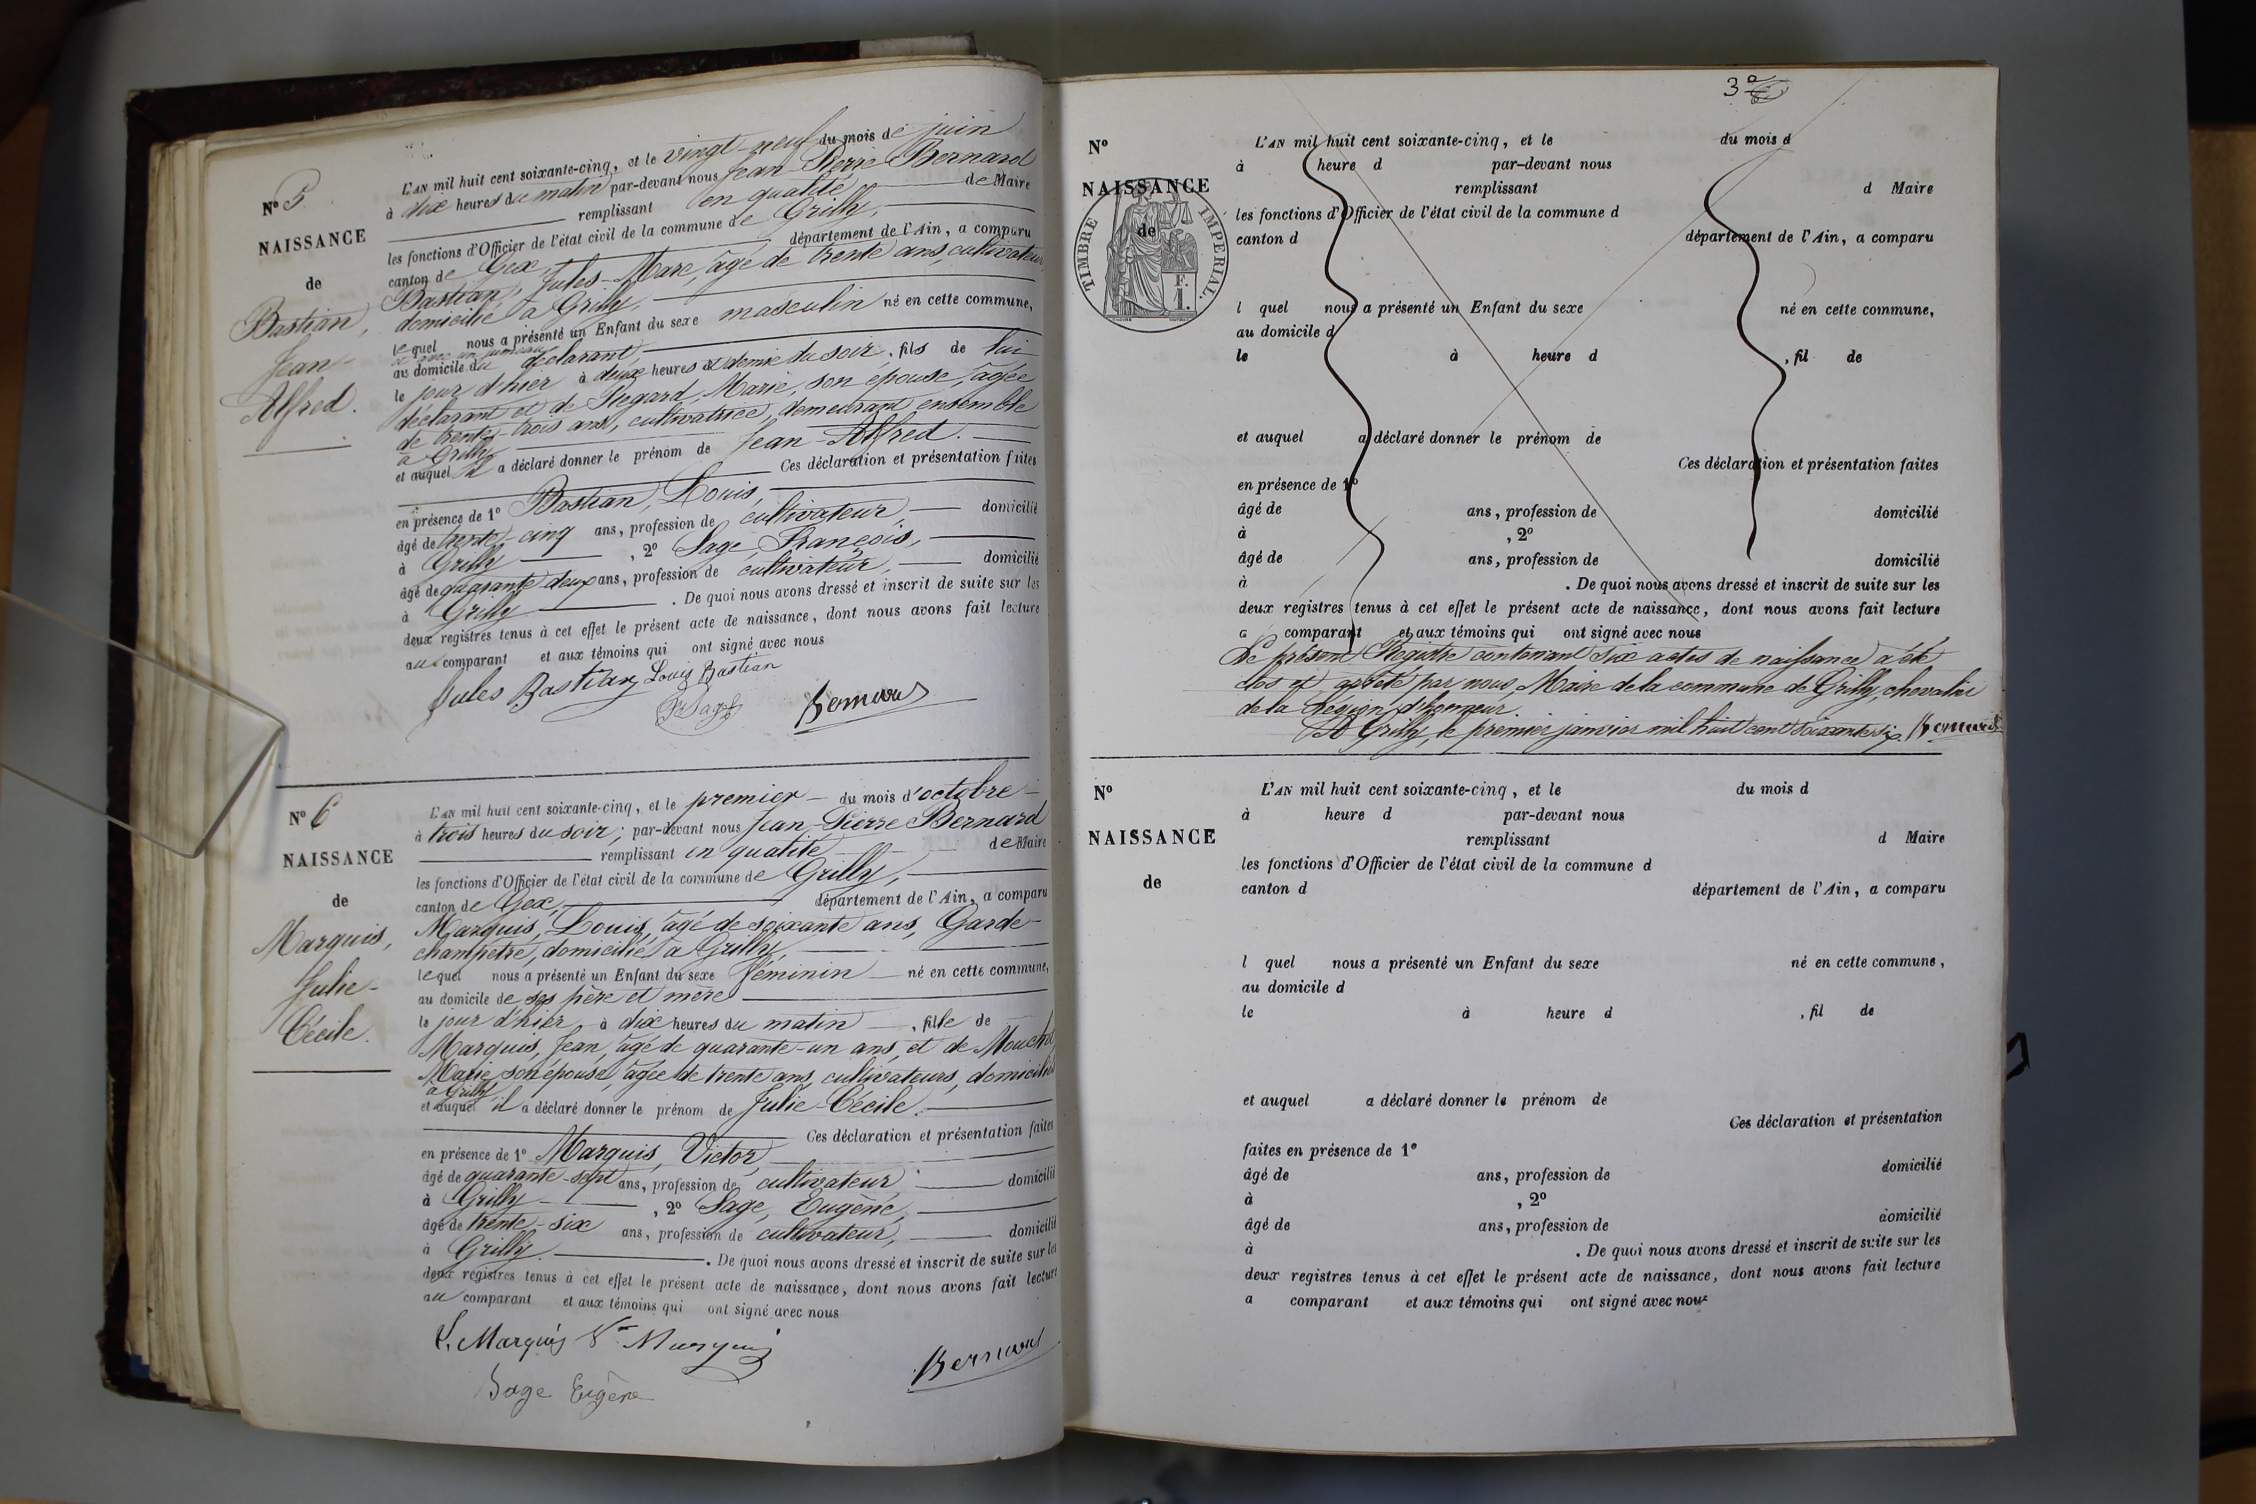 N° 5
NAISSANCE
de
Bastian,
Jean-
Alfred.
L'AN mil huit cent soixante-cinq, et le vingt-neuf du mois de juin
à dix heures du matin par-devant nous Jean-Pierre Bernard
remplissant en qualité de Maire
les fonctions d'Officier de l'état civil de la commune de Grilly,
canton de Gex, département de l'Ain, a comparu
Bastian, Jules-Marc, âgé de trente ans, cultivateur,
domicilié à Grilly,
lequel nous a présenté un Enfant du sexe masculin né en cette commune,
au domicile du déclarant
le jour d'hier à deux heures et demie du soir, fils de lui
déclarant et de Marie, son épouse, âgée
de trente-trois ans, cultivatrice, demeurant ensemble
à Grilly
et auquel il a déclaré donner le prénom de Jean-Alfred.
Ces déclaration et présentation faites
en présence de 1° Bastian, Louis,
âgé de trente-cinq ans, profession de cultivateur, domicilié
à Grilly, 2° Sage, François,
âgé de quarante deux ans, profession de cultivateur, domicilié
à Grilly. De quoi nous avons dressé et inscrit de suite sur les
deux registres tenus à cet effet le présent acte de naissance, dont nous avons fait lecture
au comparant et aux témoins qui ont signé avec nous
Jules Bastian Louis Bastian
Fr Sage Bernard
N° 6
NAISSANCE
de
Marquis,
Julie-
Cécile.
L'AN mil huit cent soixante-cinq, et le premier du mois d'octobre
à trois heures du soir; par-devant nous Jean-Pierre Bernard
remplissant en qualité de Maire
les fonctions d'Officier de l'état civil de la commune de Grilly,
canton de Gex, département de l'Ain, a comparu
Marquis, Louis, âgé de soixante ans, Garde-
champêtre, domicilié à Grilly,
lequel nous a présenté un Enfant du sexe féminin né en cette commune,
au domicile de ses père et mère
le jour d'hier à dix heures du matin, fille de
Marquis, Jean, âgé de quarante-un ans, et de
Marie son épouse, âgée de trente ans, cultivateurs, domiciliés
à Grilly
et auquel il a déclaré donner le prénom de Julie-Cécile.
Ces déclaration et présentation faites
en présence de 1° Marquis, Victor,
âgé de quarante-sept ans, profession de cultivateur, domicilié
à Grilly, 2° Sage, Eugène,
âgé de trente-six ans, profession de cultivateur, domicilié
à Grilly. De quoi nous avons dressé et inscrit de suite sur les
deux registres tenus à cet effet le présent acte de naissance, dont nous avons fait lecture
au comparant et aux témoins qui ont signé avec nous
L. Marquis Vor Marquis
Sage Eugène Bernard
3e
N°
NAISSANCE
de
TIMBRE IMPERIAL.
F.
1.
L'AN mil huit cent soixante-cinq, et le du mois d
à heure d par-devant nous
remplissant d Maire
les fonctions d'Officier de l'état civil de la commune d
canton d département de l'Ain, a comparu
l quel nous a présenté un Enfant du sexe né en cette commune,
au domicile d
le à heure d , fil de
et auquel a déclaré donner le prénom de
Ces déclaration et présentation faites
en présence de 1°
âgé de ans, profession de domicilié
à , 2°
âgé de ans, profession de domicilié
à . De quoi nous avons dressé et inscrit de suite sur les
deux registres tenus à cet effet le présent acte de naissance, dont nous avons fait lecture
a comparant et aux témoins qui ont signé avec nous
Le présent Registre contenant six actes de naissance a été
clos et arrêté par nous, Maire de la commune de Grilly, chevalier
de la Légion d'honneur.
A Grilly, le premier janvier mil huit cent soixante-six. Bernard
N°
NAISSANCE
de
L'AN mil huit cent soixante-cinq, et le du mois d
à heure d par-devant nous
remplissant d Maire
les fonctions d'Officier de l'état civil de la commune d
canton d département de l'Ain, a comparu
l quel nous a présenté un Enfant du sexe né en cette commune,
au domicile d
le à heure d , fil de
et auquel a déclaré donner le prénom de
Ces déclaration et présentation
faites en présence de 1°
âgé de ans, profession de domicilié
à , 2°
âgé de ans, profession de domicilié
à . De quoi nous avons dressé et inscrit de suite sur les
deux registres tenus à cet effet le présent acte de naissance, dont nous avons fait lecture
a comparant et aux témoins qui ont signé avec nous